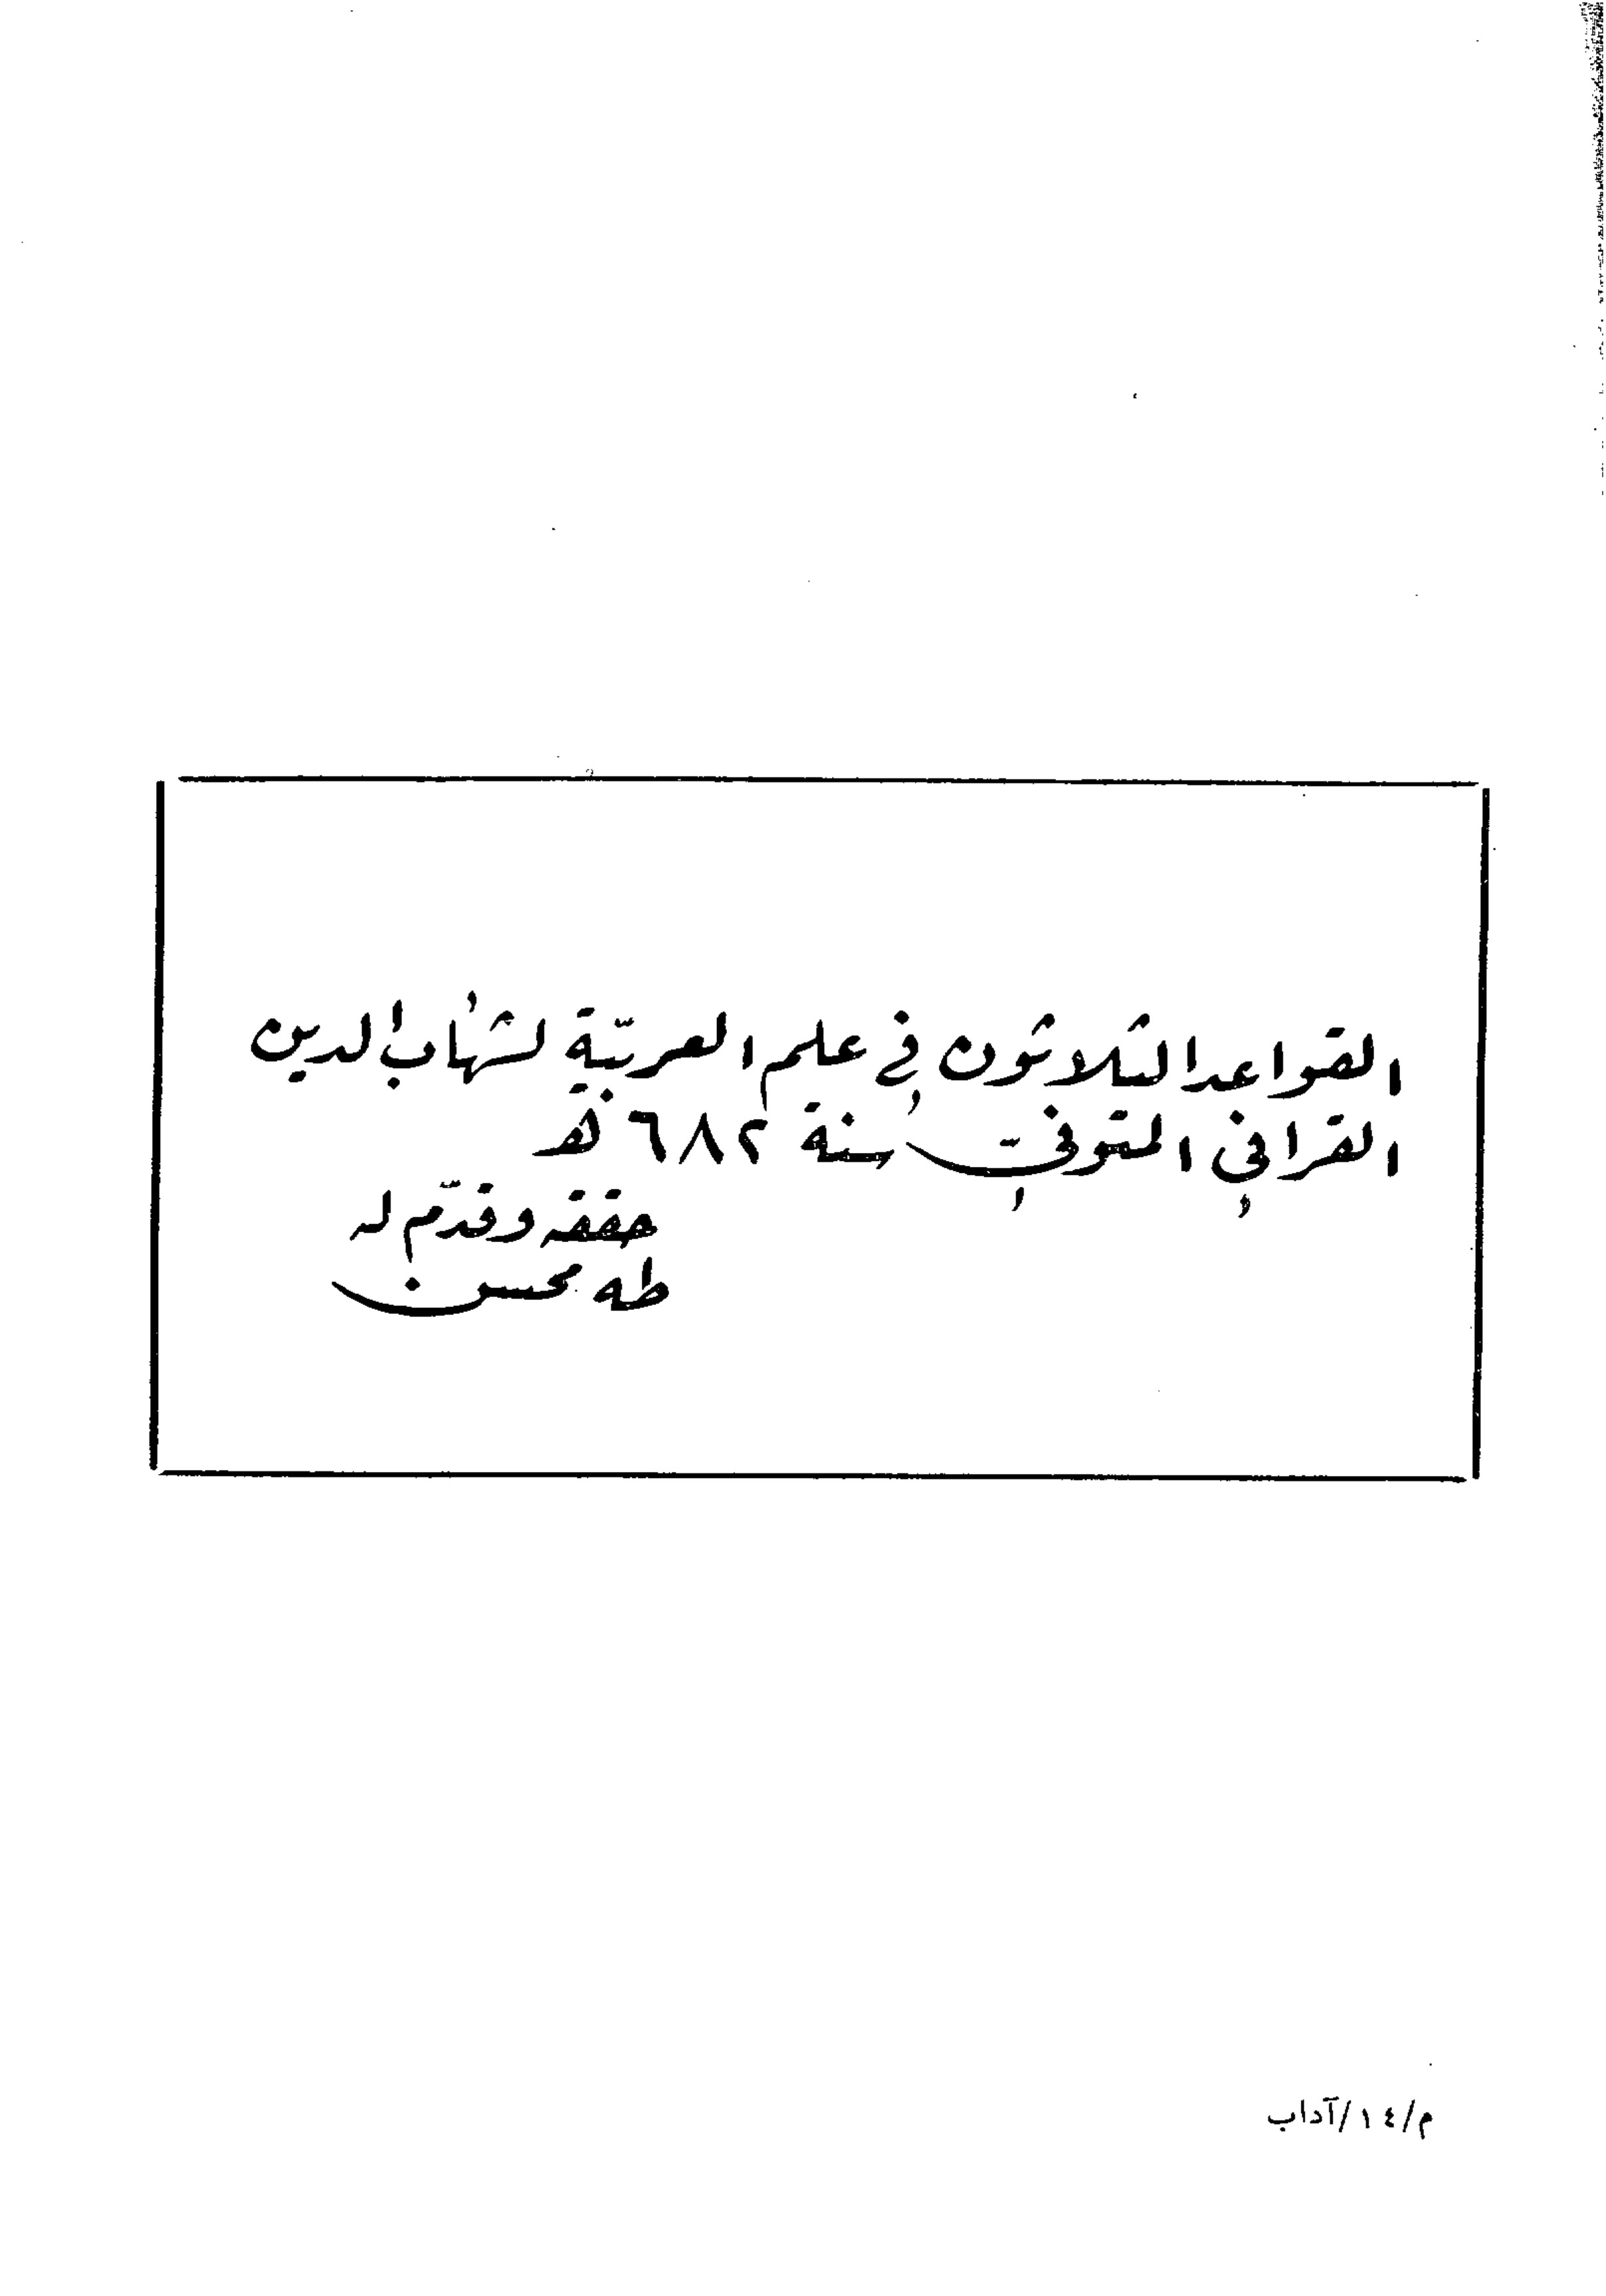 القواعد الثلاثون في علم العربيّة لشهاب الدين
القرافي المتوفى سنة ٦٨٢ هـ
حققه وقدّم له
طه محسن
م/١٤/آداب